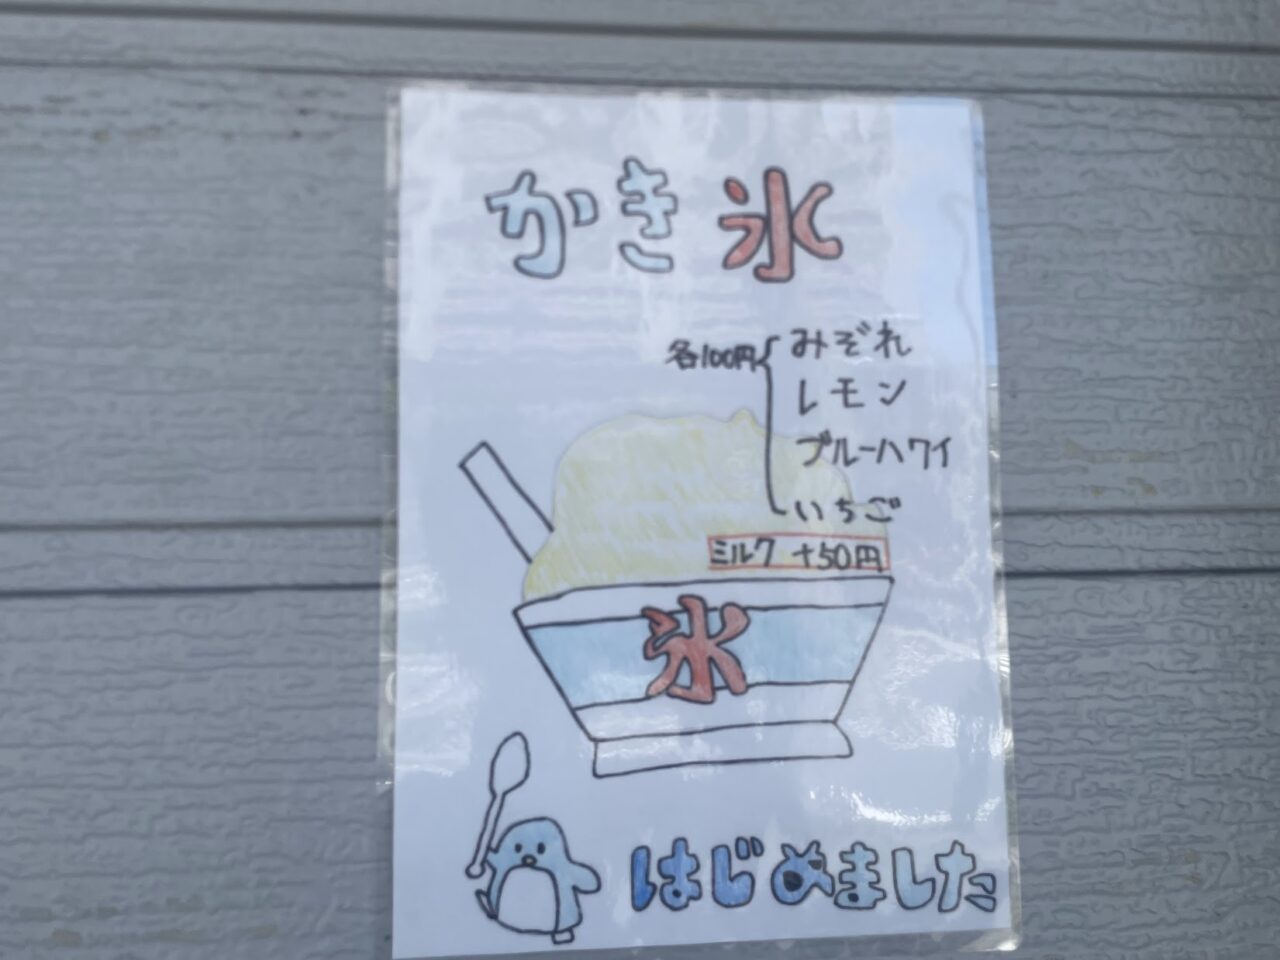 かき氷
各100円
みぞれ
レモン
ブルーハワイ
いちご
ミルク +50円
氷
はじめました